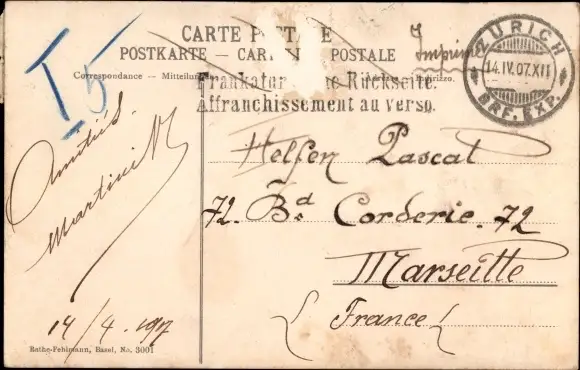 CARTE POSTALE
POSTKARTE — CARTOLINA POSTALE
Correspondance — Mitteilung Adresse Indirizzo.
Imprimé
Frankatur siehe Rückseite.
Affranchissement au verso.
ZÜRICH
14.IV.07.XII
BRF. EXP.
T 5
Amitiés.
Martini
14/4.1907
Helfen Pascal
72. Bd. Corderie. 72
Marseille
(France)
Rathe-Fehlmann, Basel, No. 3001